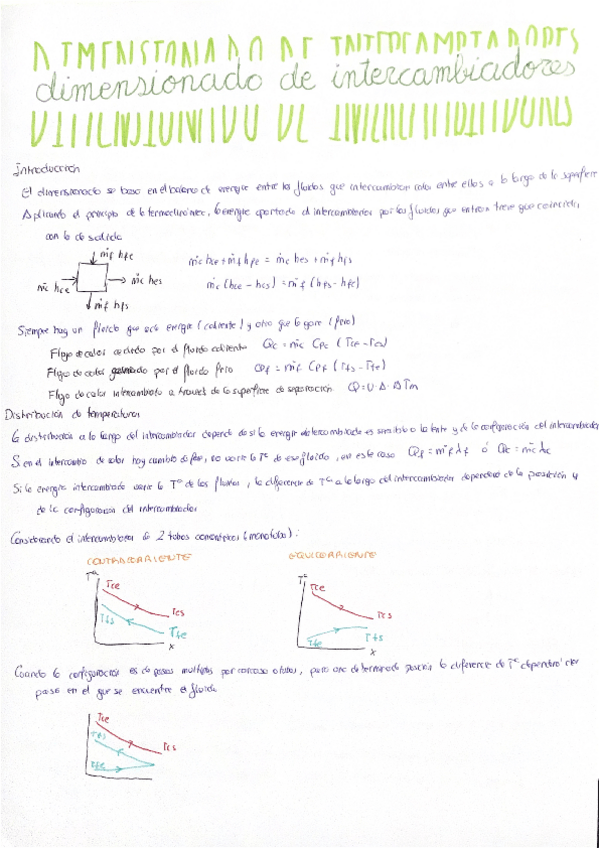 DIMENSIONADO DE INTERCAMBIADORES
dimensionado de intercambiadores
Introducción
El dimensionado se basa en el balance de energía entre los fluidos que intercambian calor entre ellos a lo largo de la superficie
Aplicando el principio de la termodinámica, la energía aportada al intercambiador por los fluidos que entran tiene que coincidir
con la de salida
ṁf hfe
ṁc hce
ṁc hes
ṁf hfs
ṁc hce + ṁf hfe = ṁc hes + ṁf hfs
ṁc (hce - hcs) = ṁf (hfs - hfe)
Siempre hay un fluido que cede energía (caliente) y otro que la gana (frío)
Flujo de calor cedido por el fluido caliente Qc = ṁc Cpc (Tce - Tcs)
Flujo de calor ganado por el fluido frío Qf = ṁf Cpf (Tfs - Tfe)
Flujo de calor intercambiado a través de la superficie de separación Q = U · A · ΔTm
Distribución de temperaturas
la distribución a lo largo del intercambiador depende de si la energía intercambiada es sensible o latente y de la configuración del intercambiador
Si en el intercambio de calor hay cambio de fase, no varía la Tª de ese fluido, en este caso Qf = ṁf λf ó Qc = ṁc λc
Si la energía intercambiada varía la Tª de los fluidos, la diferencia de Tª a lo largo del intercambiador dependerá de la posición y
de la configuración del intercambiador
Considerando el intercambiador de 2 tubos concéntricos (monotubo):
CONTRACORRIENTE EQUICORRIENTE
Tª
Tce
Tcs
Tfs
Tfe
x
Tª
Tce
Tcs
Tfe
Tfs
x
Cuando la configuración es de pasos múltiples por carcasa o tubos, para una determinada posición la diferencia de Tª dependerá del
paso en el que se encuentre el fluido
Tce
Tfs
Tcs
Tfe